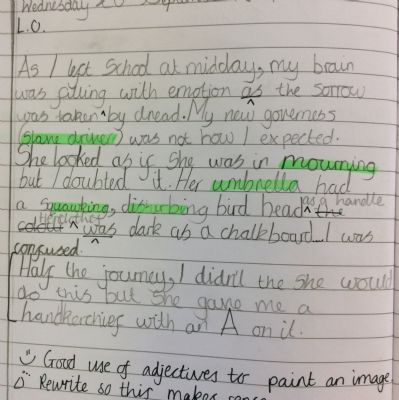 Wednesday
L.O.
As I left School at midday, my brain
was filling with emotion ^ as the sorrow
was taken ^ by dread. My new governess
(slave driver) was not how I expected.
She looked as if she was in mourning
but I doubted it. Her umbrella had
a squawking, disturbing bird head ^ as a handle the
^ Her clothes was dark as a chalkboard... I was
confused.
Half the journey, I didn't the she would
do this but she gave me a
handkerchief with an A on it.
Good use of adjectives to paint an image
Rewrite so this makes sense